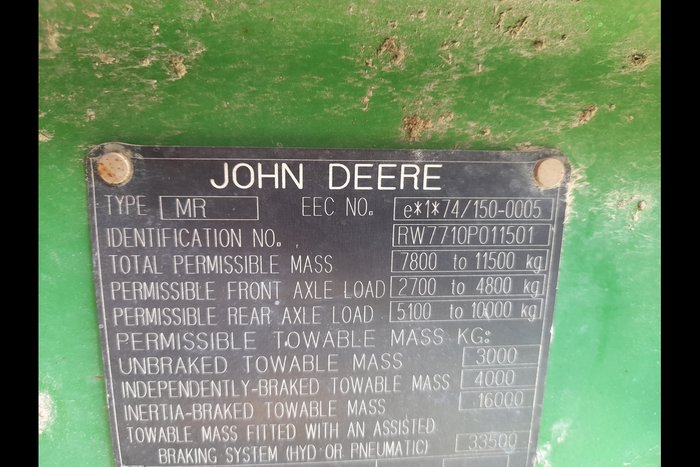 JOHN DEERE
TYPE MR EEC NO. e*1*74/150-0005
IDENTIFICATION NO. RW7710P011501
TOTAL PERMISSIBLE MASS 7800 to 11500 kg
PERMISSIBLE FRONT AXLE LOAD 2700 to 4800 kg
PERMISSIBLE REAR AXLE LOAD 5100 to 10000 kg
PERMISSIBLE TOWABLE MASS KG:
UNBRAKED TOWABLE MASS 3000
INDEPENDENTLY-BRAKED TOWABLE MASS 4000
INERTIA-BRAKED TOWABLE MASS 16000
TOWABLE MASS FITTED WITH AN ASSISTED
BRAKING SYSTEM (HYD OR PNEUMATIC) 33500